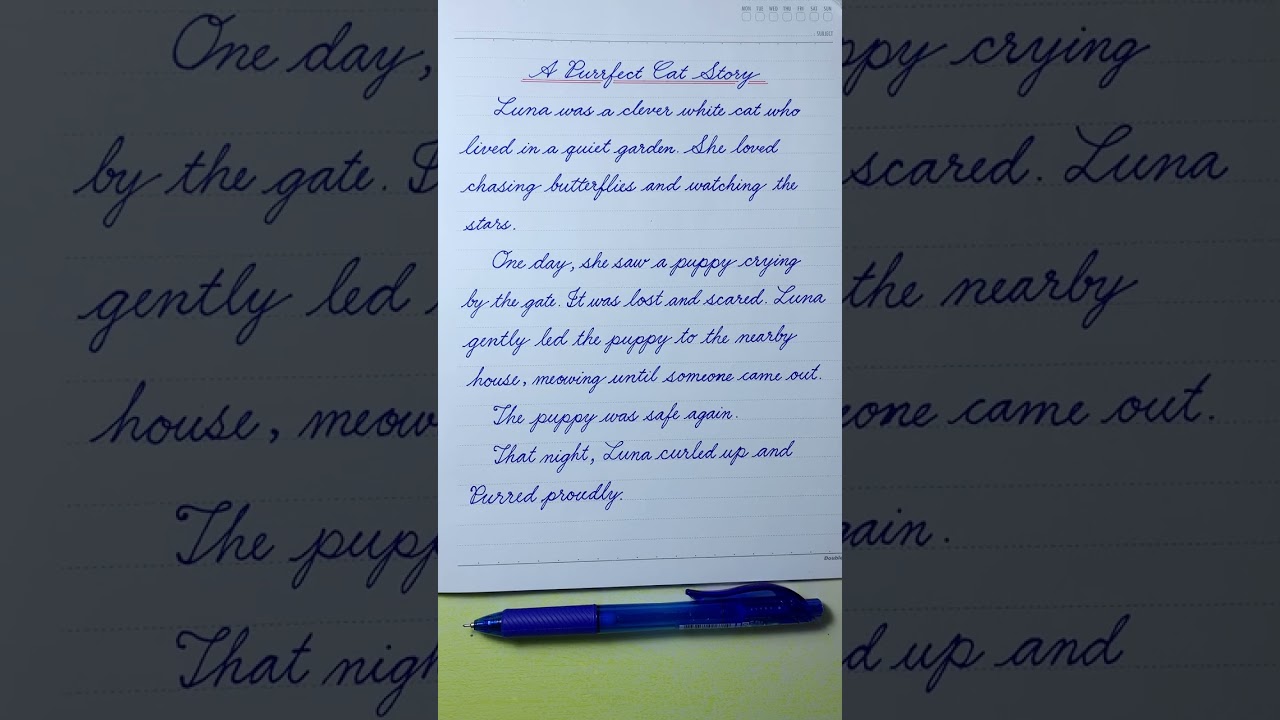 MON TUE WED THU FRI SAT SUN
SUBJECT
A Purrfect Cat Story
Luna was a clever white cat who
lived in a quiet garden. She loved
chasing butterflies and watching the
stars.
One day, she saw a puppy crying
by the gate. It was lost and scared. Luna
gently led the puppy to the nearby
house, meowing until someone came out.
The puppy was safe again.
That night, Luna curled up and
Purred proudly.